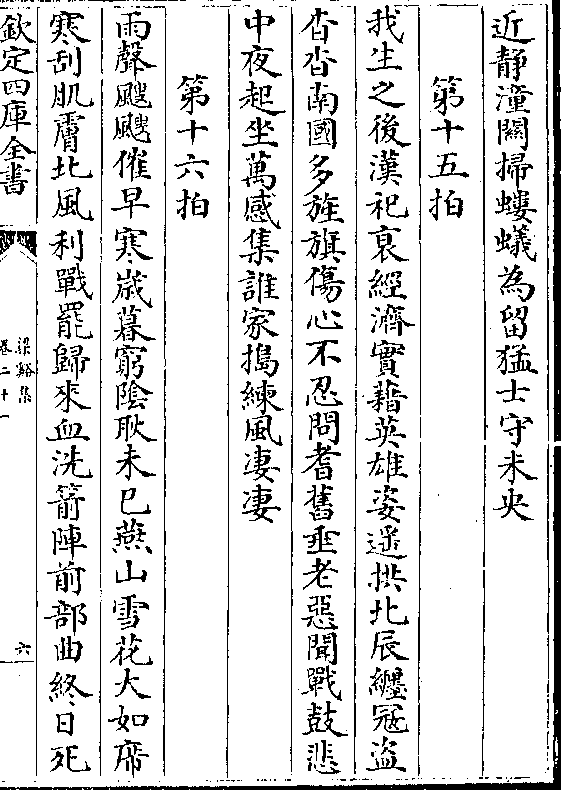 近静潼關掃螻蟻為留猛士守未央
第十五拍
我生之後漢祀衰經濟實藉英雄姿遥拱北辰纒冦盗
杳杳南國多旌旗傷心不忍問耆舊垂老惡聞戰鼓悲
中夜起坐萬感集誰家搗練風凄凄
第十六拍
雨聲颼颼催早寒歳暮窮陰耿未已燕山雪花大如席
寒刮肌膚北風利戰罷歸來血洗箭陣前部曲終日死
欽定四庫全書
梁谿集
卷二十一
六